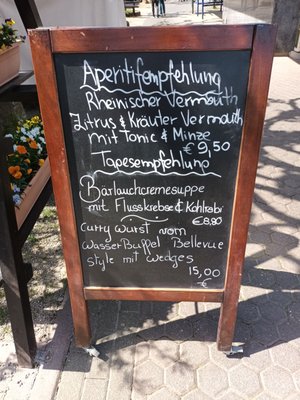 Aperitifempfehlung
Rheinischer Vermouth
Zitrus & Kräuter Vermouth
mit Tonic & Minze
€ 9,50
Tapesempfehlung
Bärlauchcremesuppe
mit Flusskrebse & Kohlrabi
€ 8,90
Curry Wurst vom
Wasser Büffel Bellevue
style mit wedges
15,00
€